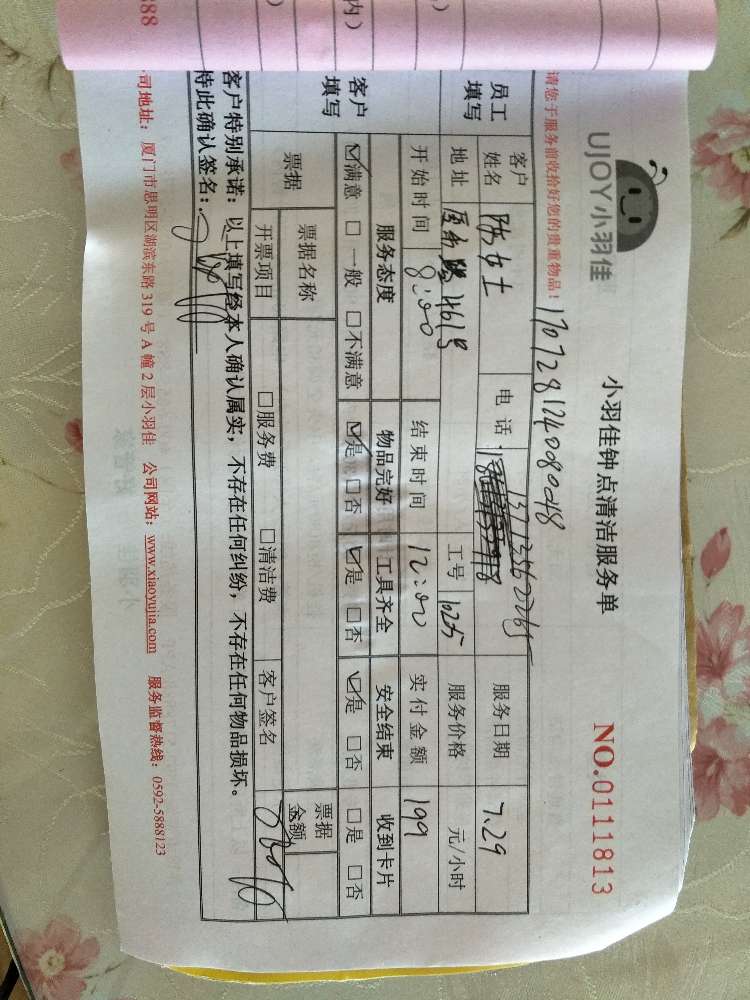 UJOY小羽佳
小羽佳钟点清洁服务单
NO.0111813
请您于服务前收拾好您的贵重物品！
170728124080048
员工填写
客户姓名 陈女士 电话 13713562265 服务日期 7.29
地址 461号 工号 10255 服务价格 元/小时
开始时间 8:00 结束时间 12:00 实付金额 199
客户填写
服务态度 物品完好 工具齐全 安全结束 收到卡片
☑满意 □一般 □不满意 ☑是 □否 ☑是 □否 ☑是 □否 □是 □否
票据 票据名称 票据金额
开票项目 □服务费 □清洁费 客户签名
客户特别承诺：以上填写经本人确认属实，不存在任何纠纷，不存在任何物品损坏。
特此确认签名：
司地址：厦门市思明区湖滨东路 319 号 A 幢 2 层小羽佳 公司网站：www.xiaoyujia.com 服务监督热线：0592-5888123
888
内）